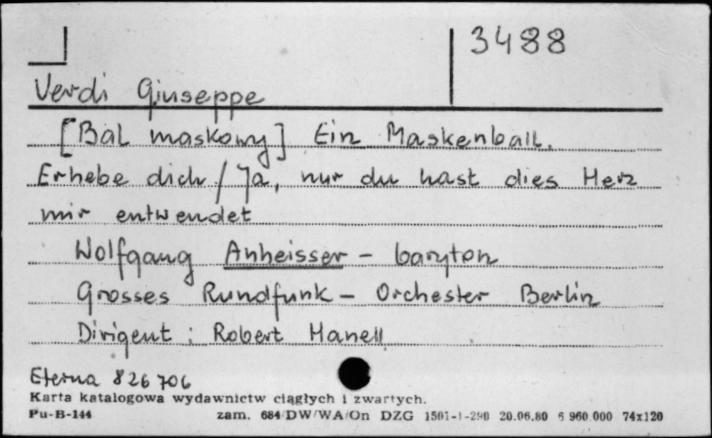 3488
Verdi Giuseppe
[Bal maskowy] Ein Maskenball.
Erhebe dich / Ja, nur du hast dies Herz
mir entwendet
Wolfgang Anheisser – baryton
Grosses Rundfunk – Orchester Berlin
Dirigent : Robert Hanell
Eterna 826 706
Karta katalogowa wydawnictw ciągłych i zwartych.
Pu-B-144 zam. 684/DW/WA/On DZG 1501-1-290 20.06.80 6 960 000 74x120